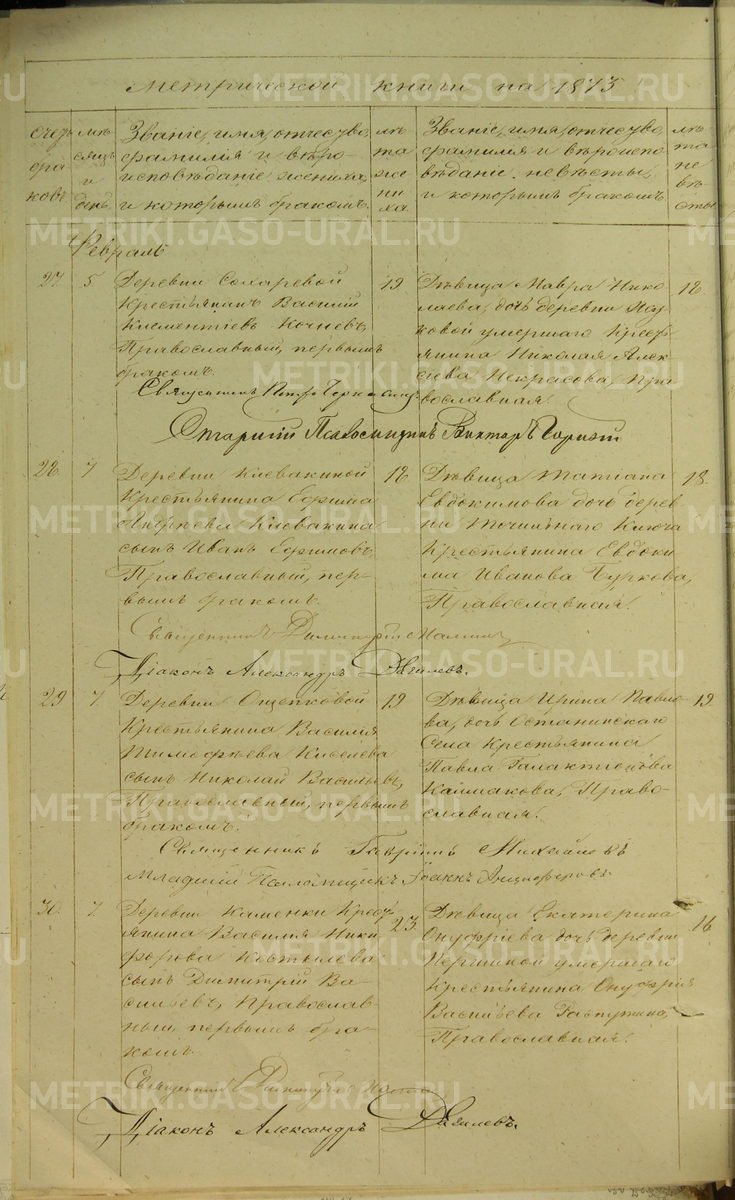 Метрической книги на 1873
Очедь браковъ
мѣсяцъ и день
Званіе, имя, отчество,
фамилія и вѣро-
исповѣданіе жениха,
и которымъ бракомъ.
лѣта жениха
Званіе, имя, отчество,
фамилія и вѣроиспо
вѣданіе невѣсты,
и которымъ бракомъ
лѣта невѣсты
Февраль
27. 5
Деревни Сохаревой
Крестьянинъ Василій
Климентіевъ Кочневъ,
Православный, первымъ
бракомъ.
19
Дѣвица Мавра Нико
лаева, дочь деревни
ковой умершаго Кресть
янина Николая Алек
сѣева Некрасова, Пра
вославная.
18
Священникъ Петръ
Старшій Псаломщикъ Викторъ
28 7
Деревни Клевакиной
Крестьянина Ефима
Клевакина
сынъ Иванъ Ефимовъ,
Православный, пер-
вымъ бракомъ.
18
Дѣвица Татіана
Евдокимова дочь дерев
ни Точильнаго Ключа
Крестьянина Евдоки
ма Иванова Буркова,
Православная.
18
Священникъ Димитрій
Діаконъ Александръ
29 7
Деревни Ощепковой
Крестьянина Василія
Тимофѣева Киселева
сынъ Николай Васильевъ,
Православный, первымъ
бракомъ.
19
Дѣвица Ирина Павло
ва, дочь Останинскаго
Села Крестьянина
Павла Галактіонова
Калмакова, Право-
славная.
19
Священникъ Гавріилъ
Младшій Псаломщикъ Іоаннъ Анциферовъ
30. 7.
Деревни Каменки Кресть
янина Василія Ники
форова Костылева
сынъ Димитрій Ва-
сильевъ, Православ-
ный, первымъ бра-
комъ.
23
Дѣвица Екатерина
Онуфріева дочь деревни
умершаго
Крестьянина Онуфрія
Васильева
Православная.
16
Священникъ Димитрій
Діаконъ Александръ
METRIKI.GASO-URAL.RU